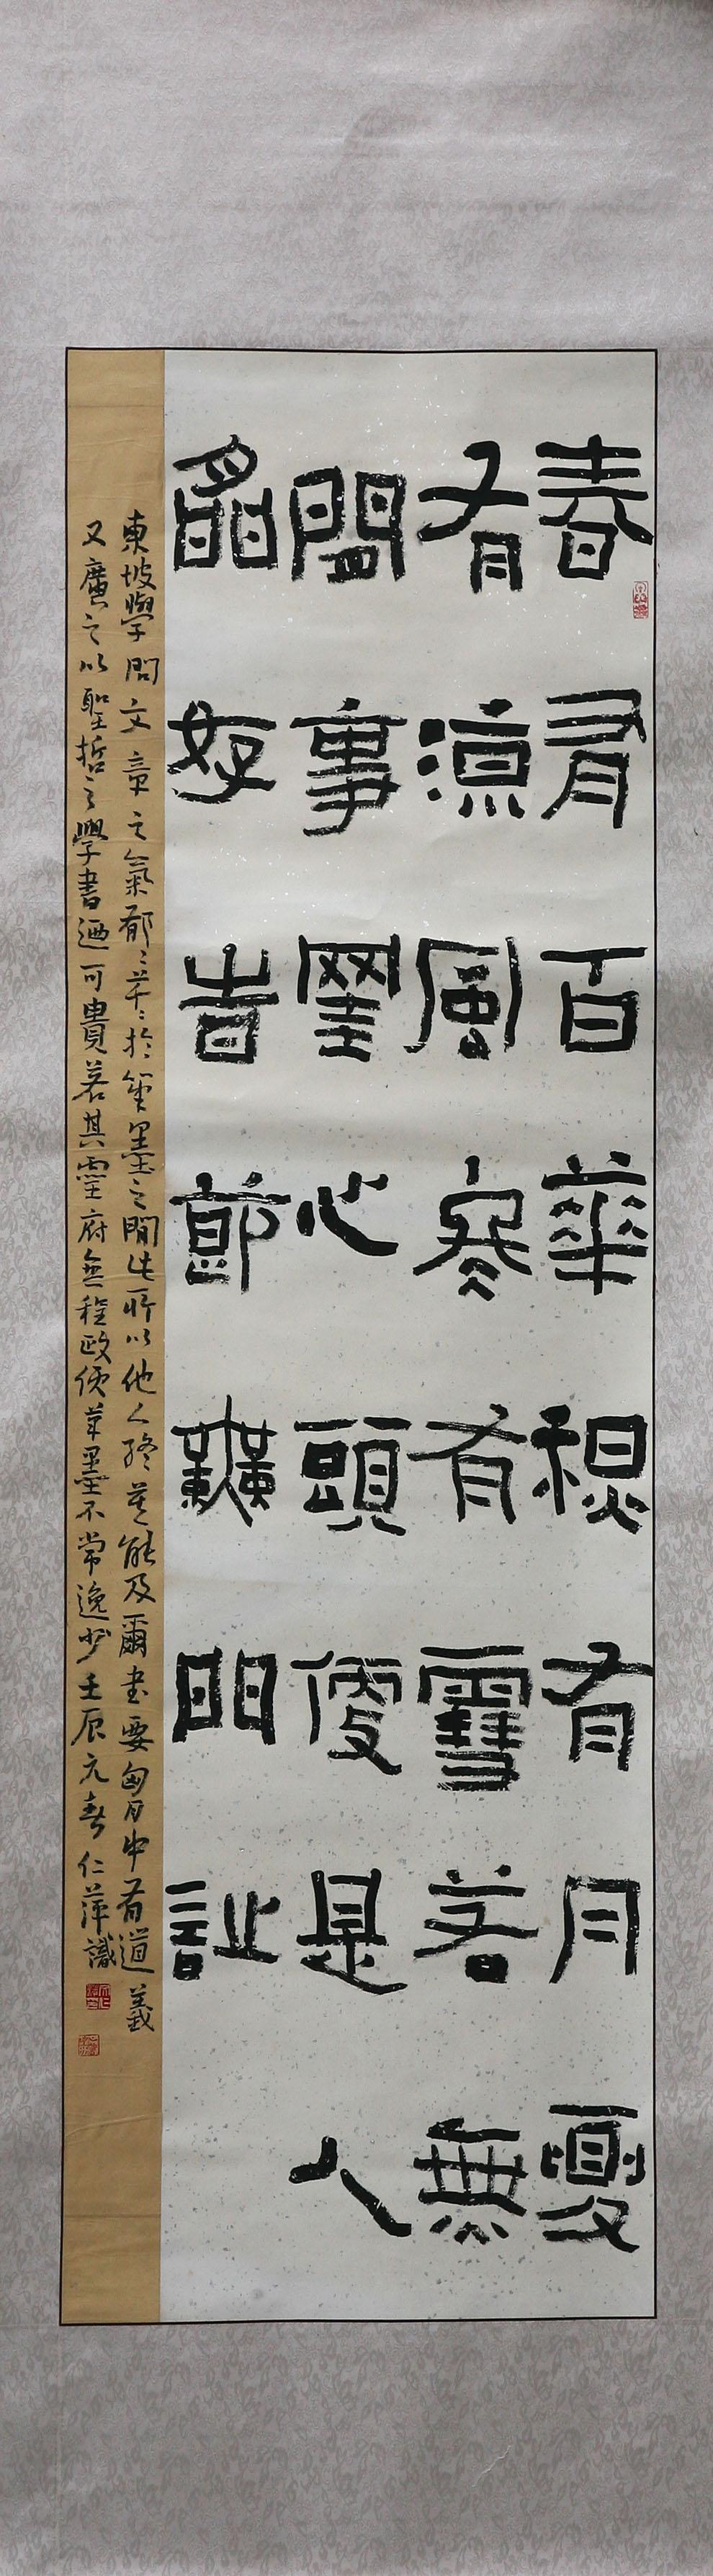 春有百華秋有月夏
有涼風冬有雪若無
閒事罣心頭便是人
間好時節門
東坡學問文章之氣郁〻芊〻於筆墨之間此所以他人終莫能及爾書要胷中有道義
又廣之以聖哲之學書迺可貴若其靈府無程政使筆墨不常逸少壬辰元春仁萍識